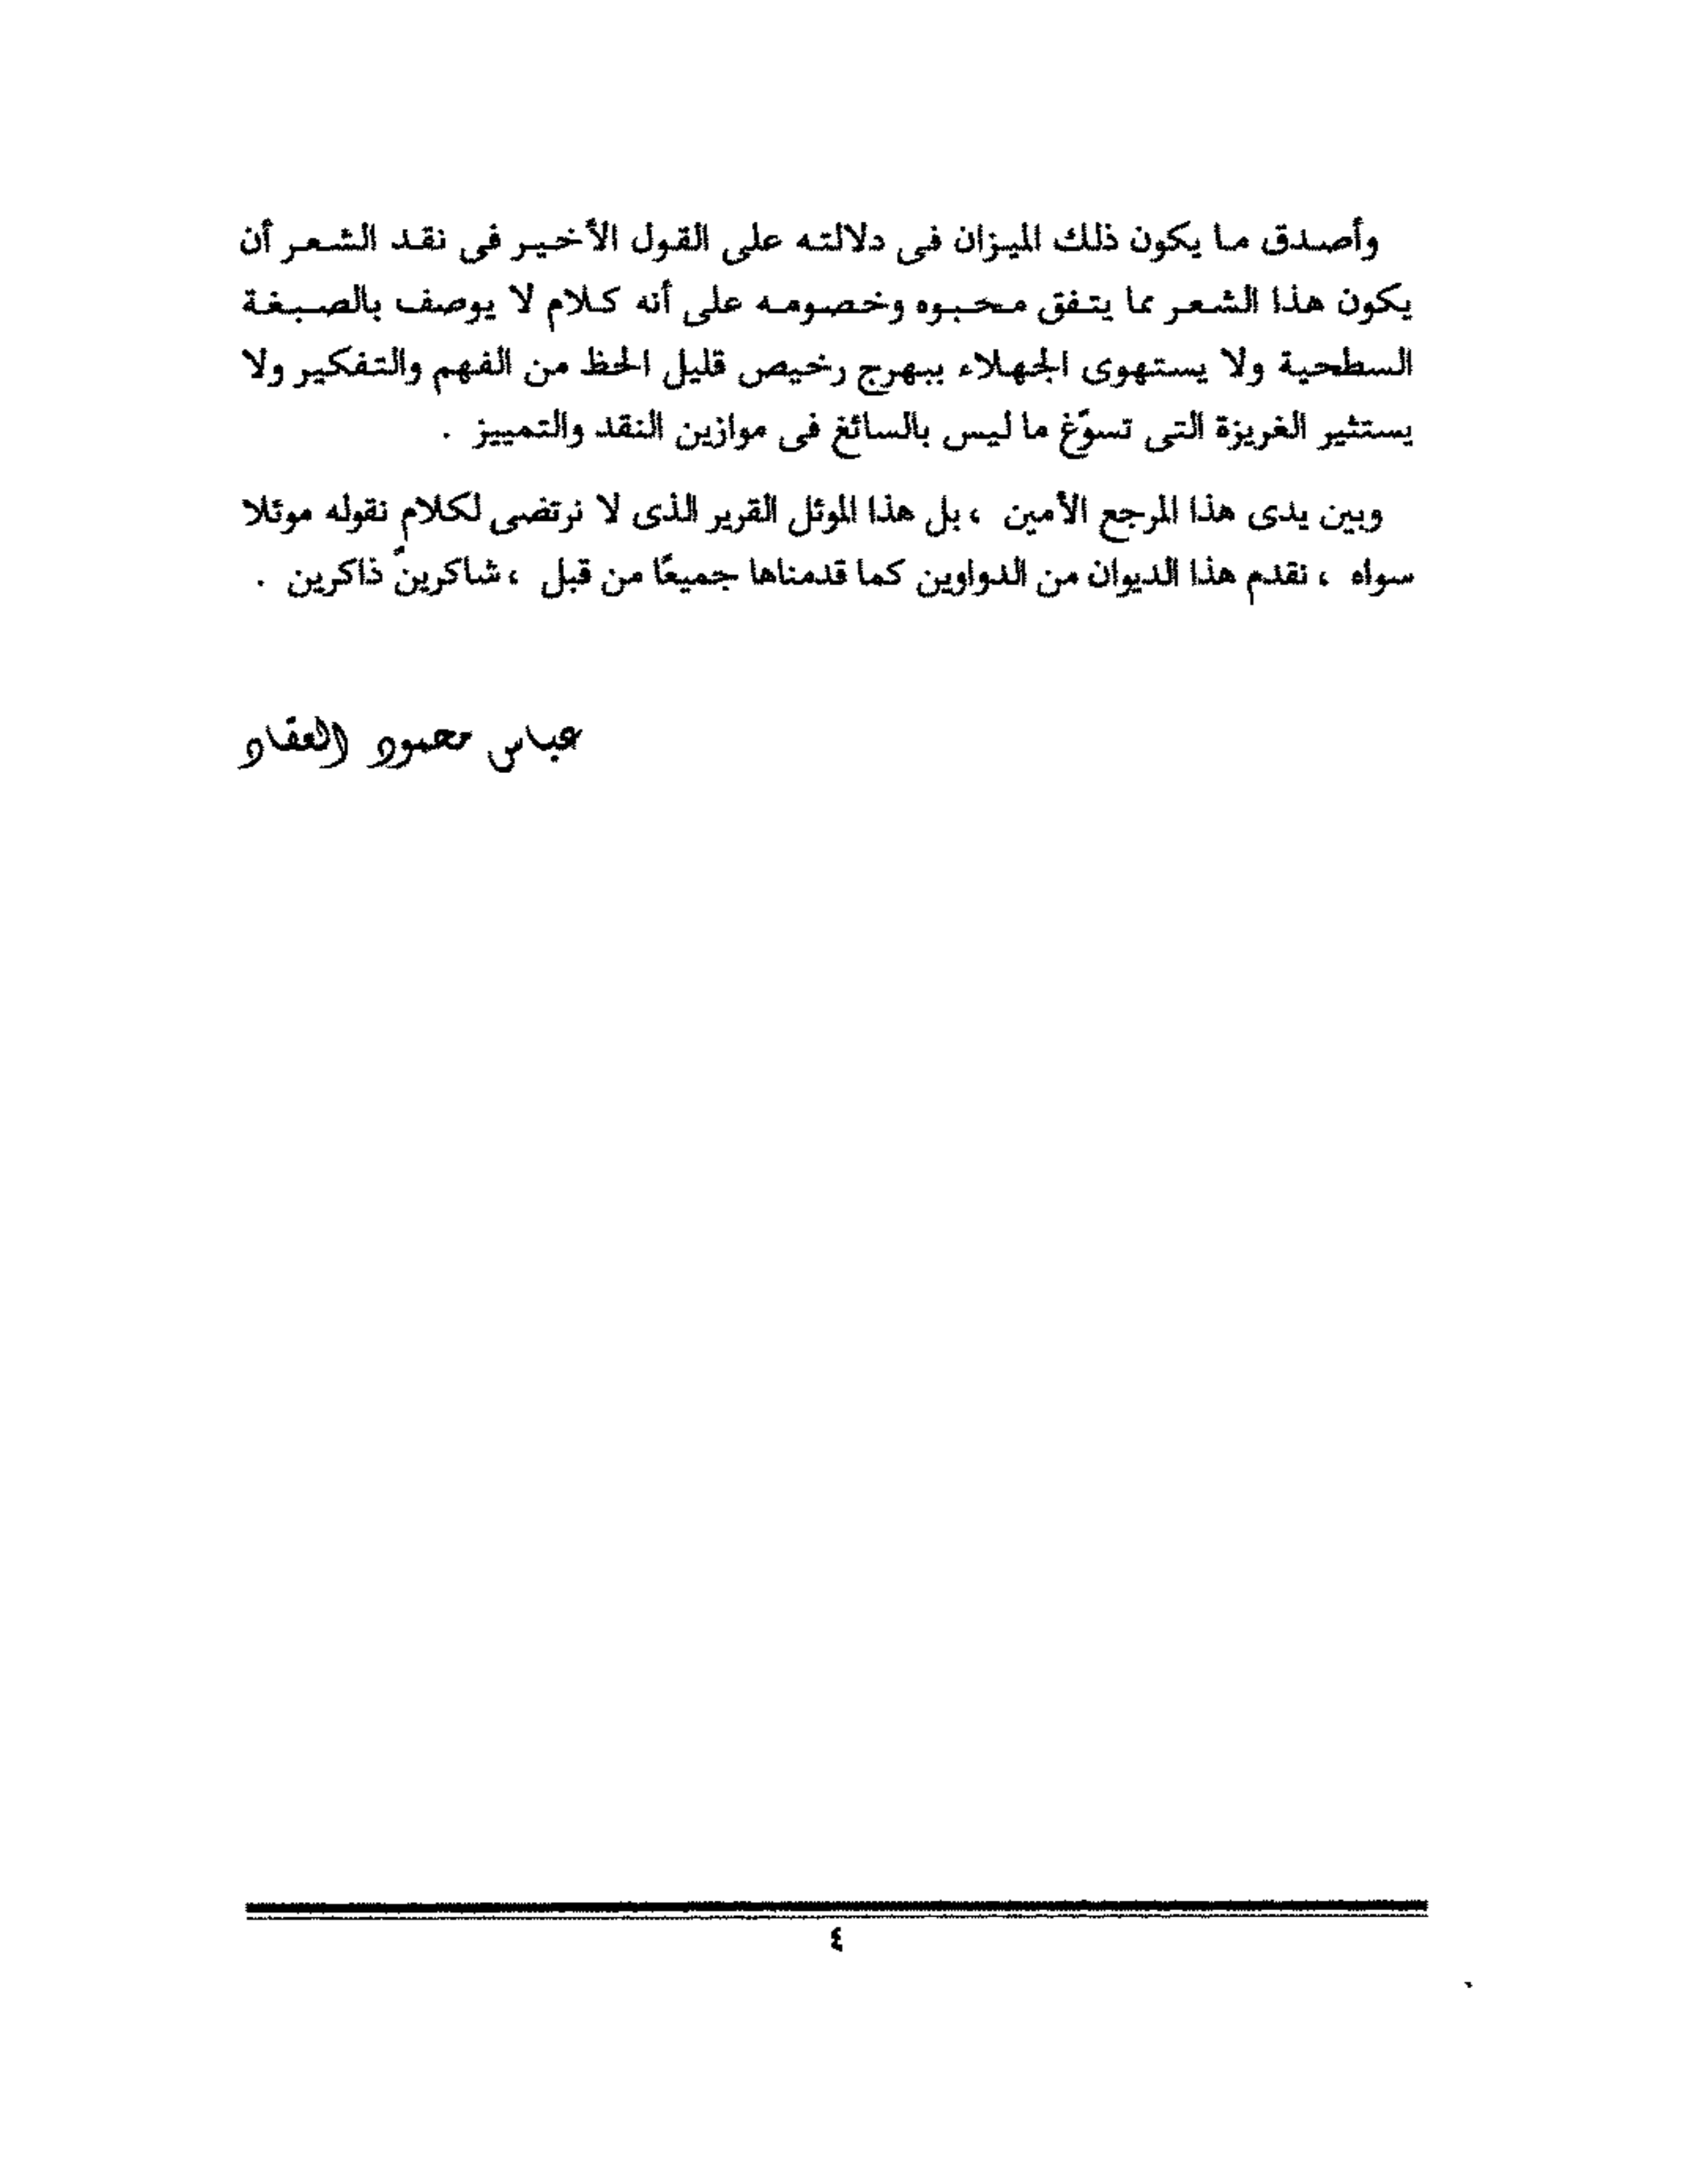 وأصدق ما يكون ذلك الميزان فى دلالته على القول الأخير فى نقد الشعر أن
يكون هذا الشعر مما يتفق محبوه وخصومه على أنه كلام لا يوصف بالصبغة
السطحية ولا يستهوى الجهلاء ببهرج رخيص قليل الحظ من الفهم والتفكير ولا
يستثير الغريزة التى تسوّغ ما ليس بالسائغ فى موازين النقد والتمييز .
وبين يدى هذا المرجع الأمين ، بل هذا الموئل القرير الذى لا نرتضى لكلام نقوله موئلا
سواه ، نقدم هذا الديوان من الدواوين كما قدمناها جميعًا من قبل ، شاكرين ذاكرين .
عباس محمود العقاد
٤